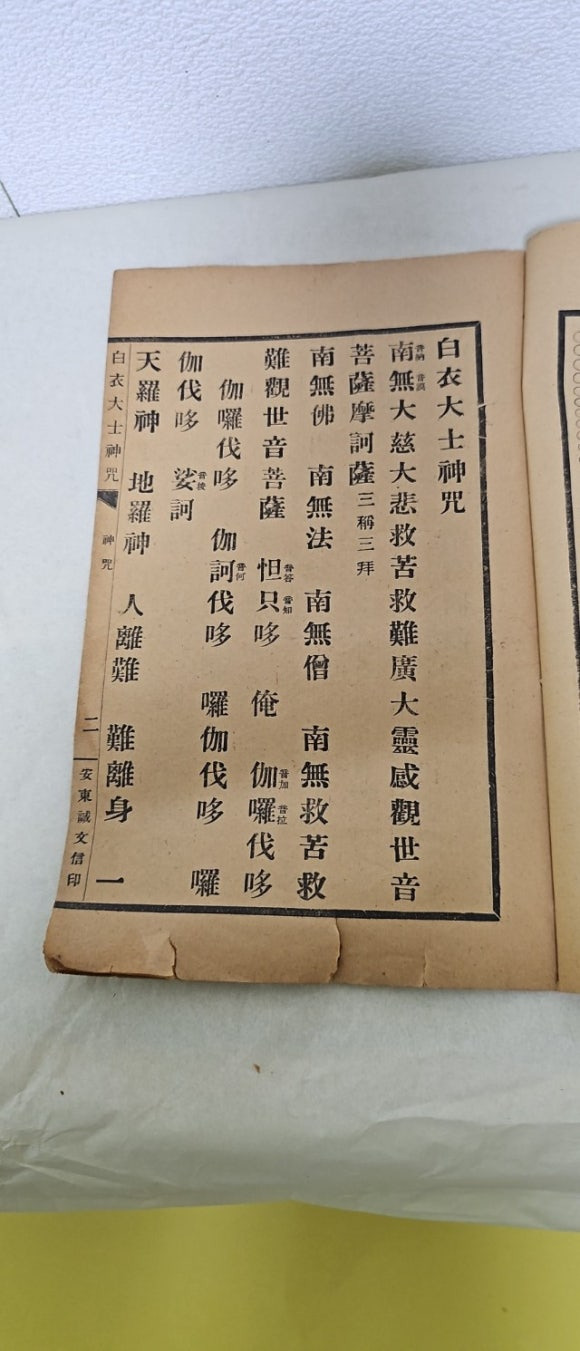 白衣大士神咒
南音納無音謨大慈大悲救苦救難廣大靈感觀世音
菩薩摩訶薩三稱三拜
南無佛　南無法　南無僧　南無救苦救
難觀世音菩薩　怛音答只音知哆　唵　伽音加囉音拉伐哆
伽囉伐哆　伽訶音何伐哆　囉伽伐哆　囉
伽伐哆　娑音梭訶
天羅神　地羅神　人離難　難離身　一
白衣大士神咒　神咒　二　安東誠文信印